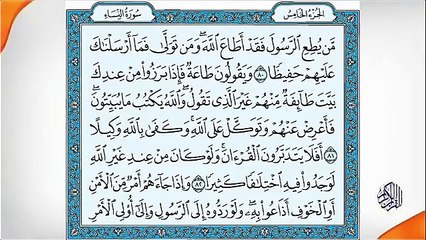 الجزء الخامس
سورة النساء
مَّن يُطِعِ ٱلرَّسُولَ فَقَدْ أَطَاعَ ٱللَّهَ ۖ وَمَن تَوَلَّىٰ فَمَآ أَرْسَلْنَٰكَ
عَلَيْهِمْ حَفِيظًا ٨٠ وَيَقُولُونَ طَاعَةٌ فَإِذَا بَرَزُوا۟ مِنْ عِندِكَ
بَيَّتَ طَآئِفَةٌ مِّنْهُمْ غَيْرَ ٱلَّذِى تَقُولُ ۖ وَٱللَّهُ يَكْتُبُ مَا يُبَيِّتُونَ ۖ
فَأَعْرِضْ عَنْهُمْ وَتَوَكَّلْ عَلَى ٱللَّهِ ۚ وَكَفَىٰ بِٱللَّهِ وَكِيلًا
٨١ أَفَلَا يَتَدَبَّرُونَ ٱلْقُرْءَانَ ۚ وَلَوْ كَانَ مِنْ عِندِ غَيْرِ ٱللَّهِ
لَوَجَدُوا۟ فِيهِ ٱخْتِلَٰفًا كَثِيرًا ٨٢ وَإِذَا جَآءَهُمْ أَمْرٌ مِّنَ ٱلْأَمْنِ
أَوِ ٱلْخَوْفِ أَذَاعُوا۟ بِهِۦ ۖ وَلَوْ رَدُّوهُ إِلَى ٱلرَّسُولِ وَإِلَىٰٓ أُو۟لِى ٱلْأَمْرِ